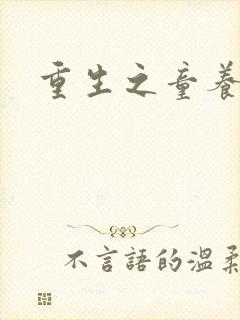 重生之童養
不言語的溫柔